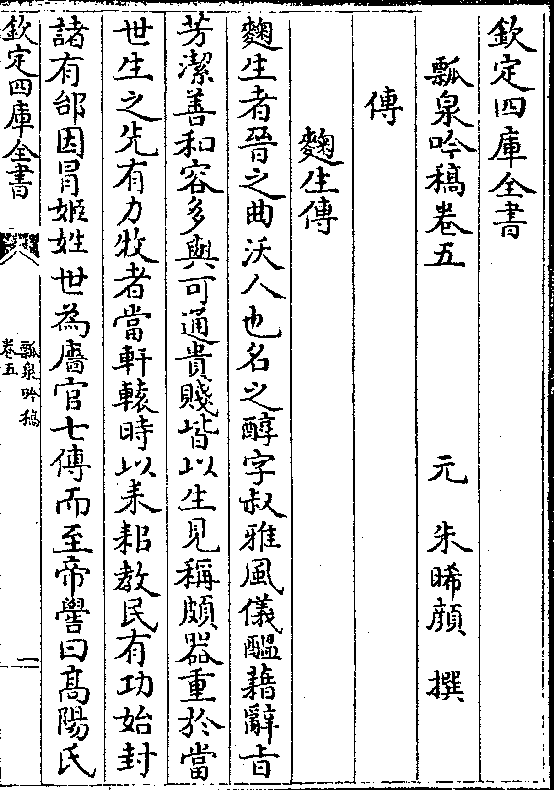 欽定四庫全書
瓢泉吟稿卷五
元 朱晞顔 撰
傳
麴生傳
麴生者晉之曲沃人也名之醇字叔雅風儀醖藉辭㫖
芳潔善和容多與可通貴賤皆以生見稱頗器重於當
世生之先有力牧者當軒轅時以耒耜教民有功始封
諸有邰因冐姬姓世為嗇官七傳而至帝嚳曰髙陽氏
欽定四庫全書
瓢泉吟稿
卷五
一